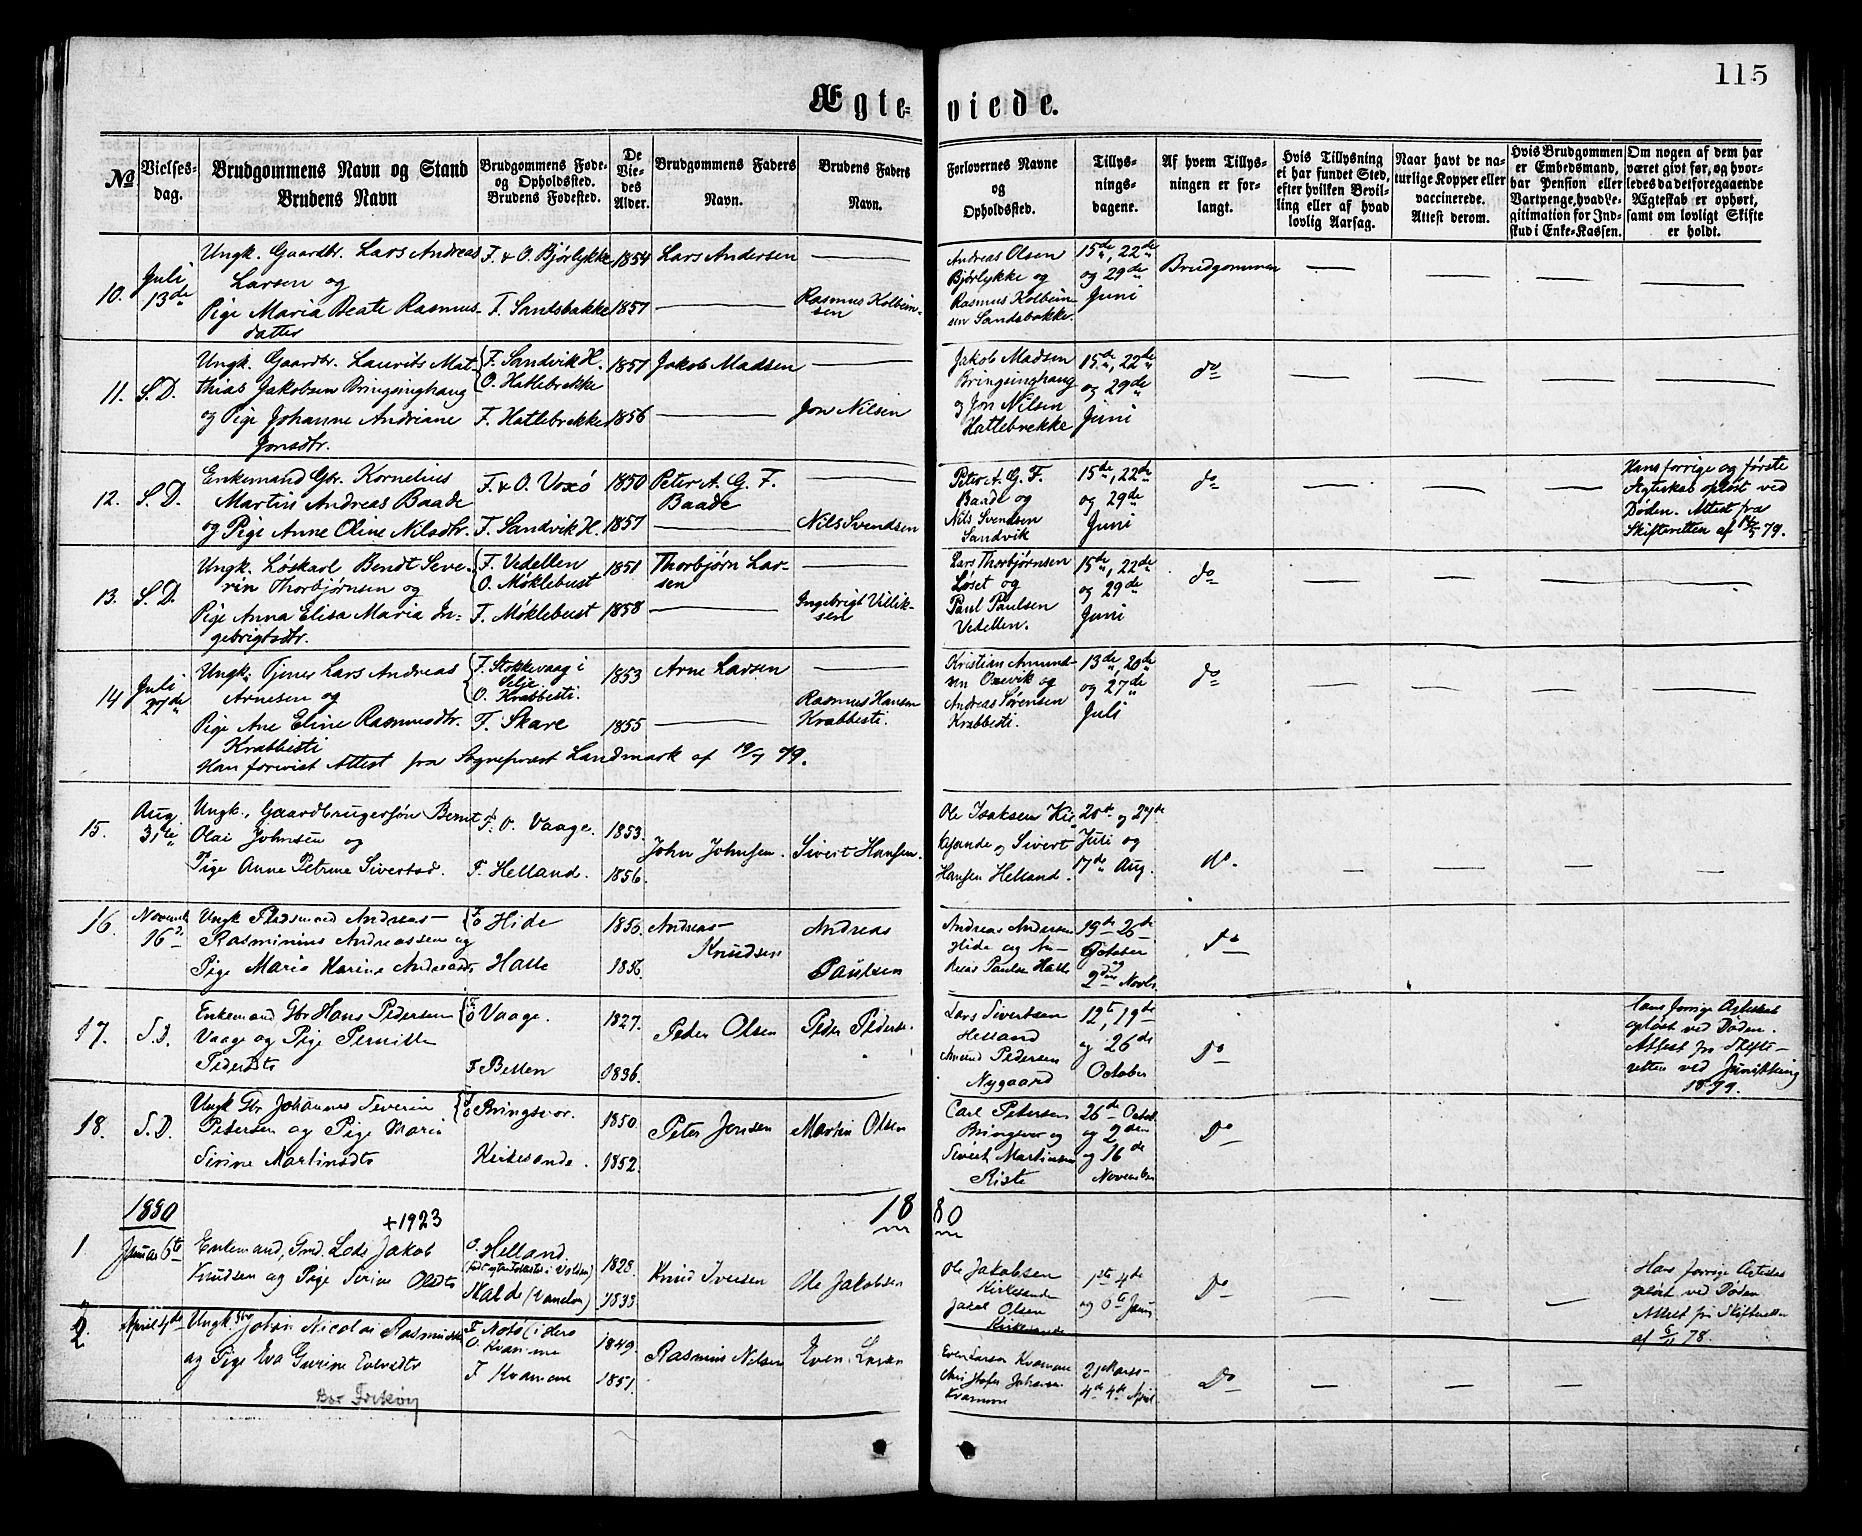 115
Ægte- viede.
No
Vielses-
dag.
Brudgommens Navn og Stand
Brudens Navn
Brudgommens Føde-
og Opholdssted.
Brudens Fødested.
De
Vie-
des
Alder.
Brudgommens Faders
Navn.
Brudens Faders
Navn.
Forlovernes Navne
og
Opholdssted.
Tillys-
nings-
dagene.
Af hvem Tillys-
ningen er for-
langt.
Hvis Tillysning
ei har fundet Sted,
efter hvilken Bevil-
ling eller af hvad
lovlig Aarsag.
Naar havt de na-
turlige Kopper eller
vaccinerede.
Attest derom.
Hvis Brudgommen
er Embedsmand,
har Pension eller
Vartpenge, hvad Le-
gitimation for Ind-
skud i Enke-Kassen.
Om nogen af dem har
været givt før, og hvor-
ledes da det foregaaende
Ægteskab er ophørt,
samt om lovligt Skifte
er holdt.
10.
Juli
13de
Ungk. Gaardbr. Lars Andreas
Larsen og
Pige Maria Beate Rasmus-
datter
F. & O. Bjørlykke
F. Sandsbakke
1854
1857
Lars Andersen
Rasmus Kolbein-
sen
Andreas Olsen
Bjørlykke og
Rasmus Kolbein-
sen Sandsbakke.
15de, 22de
og 29de
Juni
Brudgommen
11.
S. D.
Ungk. Gaardbr. Laurits Mat-
thias Jakobsen Bringsinghaug
og Pige Johanne Andriane
Jonsdtr.
F. Sandvik H.
O. Hatlebrekke
F. Hatlebrekke
1857
1856
Jakob Madsen
Jon Nilsen
Jakob Madsen
Bringsinghaug
og Jon Nilsen
Hatlebrekke
15de, 22de
og 29de
Juni
do
12.
S. D.
Enkemand Gbr. Kornelius
Martin Andreas Baade
og Pige Anne Oline Nilsdtr.
F. & O. Voxö
F. Sandvik H.
1850
1857
Peter A. G. F.
Baade
Nils Svendsen
Peter A. G. F.
Baade og
Nils Svendsen
Sandvik
15de, 22de
og 29de
Juni
do
Hans forrige og første
Ægteskab opløst ved
Døden. Attest fra
Skifteretten af 79.
13.
S. D.
Ungk. Løskarl Bendt Seve-
rin Thorbjørnsen og
Pige Anna Elisa Maria In-
gebrigtsdtr.
F. Vedellen
O. Møklebust
F. Møklebust
1851
1858
Thorbjørn Lar-
sen
Ingebrigt Villik-
sen
Lars Thorbjørnsen
Løset og
Paul Paulsen
Vedellen.
15de, 22de
og 29de
Juni
do
14
Juli
27de
Ungk. Tjener Lars Andreas
Arnesen og
Pige Ane Eline Rasmusdtr.
Krabbesti
Han forevist Attest fra Sognepræst Landmark af 19/7 79.
F. Stokkevaag i
Selje.
O. Krabbesti.
F. Skare
1853
1855
Arne Larsen
Rasmus Hansen
Krabbesti.
Kristian Amund-
sen Oxevik og
Andreas Sørensen
Krabbesti.
13de, 20de
og 27de
Juli
do
15.
Aug.
31te
Ungk., Gaardbrugersøn Bernt
Olai Johnsen og
Pige Anne Petrine Sivertsd.
F. O. Vaage.
F. Helland.
1853.
1856.
John Johnsen.
Sivert Hansen.
Ole Isaksen
og Sivert
Hansen Helland.
20de og 27de
Juli og
17de Aug.
do.
16.
Novemb.
16de
Ungk Pladsmand Andreas
Rasminius Andreassen og
Pige Maria Karine Andreasdt
Hide
Halle
1856.
1856.
Andreas
Knudsen
Andreas
Paulsen
Andreas Andersen
Hide og An-
dreas Paulse Halle
19de 26de
October
og
2den Novbr.
Do
17.
S. D.
Enkemand Gbr Hans Pedersen
Vaage og Pige Pernille
Pedersdtr
F O Vaage.
F Betten
1827.
1836.
Peder Olsen
Peder Pederse.
Lars Sivertsen
Helland
Amund Pedersen
Nygaard
12te, 19de
og 26de
October
Do
Hans forrige Ægteskab
opløst ved Døden.
Attest fra Skifte-
retten ved Jarvikbing
1879.
18.
S. D.
Ungk Gbr Johannes Severin
Petersen og Pige Maria
Sirine Martinsdtr
F O Bringsvor.
Kirkesande.
1850.
1852.
Peter Jensen
Martin Olsen
Carl Petersen
Bringsvor og
Sivert Martinsen
Riste
26de Octob.
og 2den
og 16de
November
Do
1880
+1923
1880
1
Januar 6te
Enkemand, Gmd. Lods Jakob
Knudsen og Pige Serine Olsdtr
O. Helland.
Halde (Vanelven)
1828.
1833.
Knud Iversen
Ole Jakobsen
Ole Jakobsen
Kirkesande
Jakob Olsen
Kirkesande
1ste 4de
og 6te Janu
Do
Hans forrige Ægtesk
opløst ved Døden
Attest fra Skifteretten
af 6/11 78.
2.
April 4de
Ungk. Gbr Johan Nicolai Rasmussen
og Pige Eva Gurine Evensdtr
Bor Frekøy
O. Kvamme
F Kvamme
1849.
1851.
Rasmus Nilsen
Even Larsen
Even Larsen Kvamme
Christofer Johansen
Kvamme
21 Marts
4de April
Do